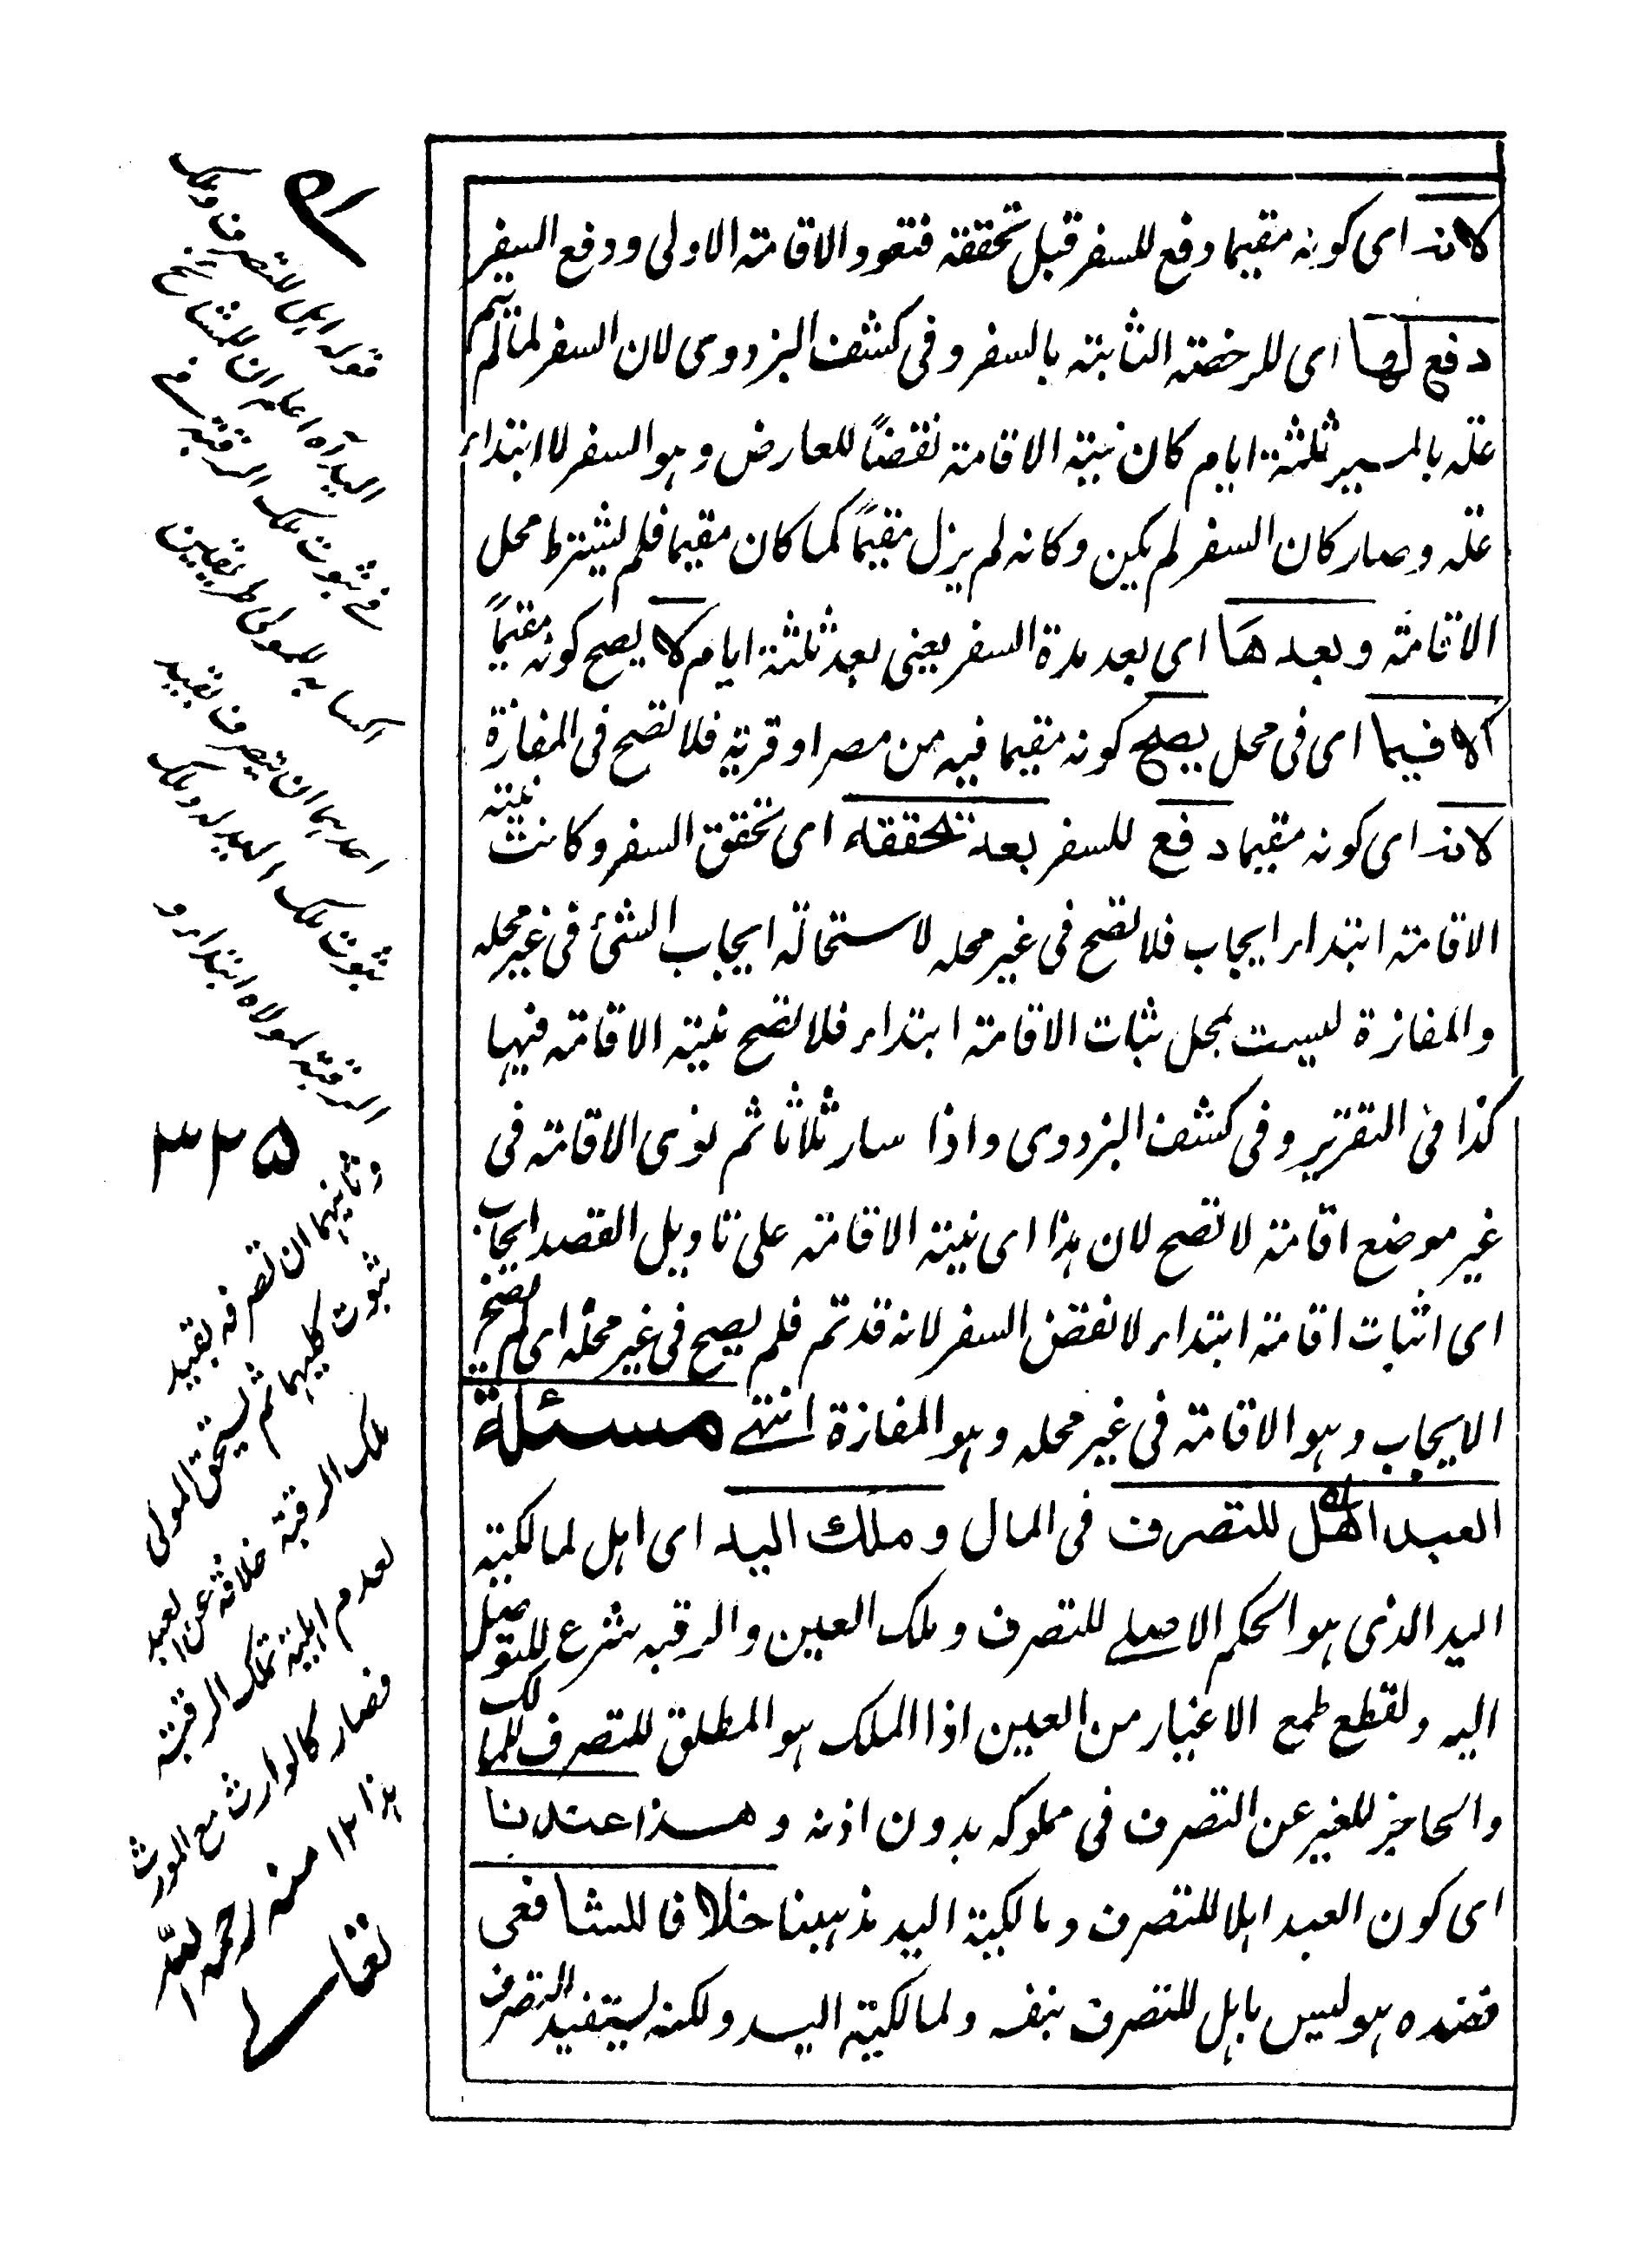 لانه اى كونه مقيما دفع للسفر قبل تحققه فتعود الاقامة الاولى ودفع السفر
دفع لها اى للرخصة الثابتة بالسفر وفى كشف البزدوى لان السفر لما لم يتم
علة بالمسير ثلثة ايام كان نية الاقامة نقضاً للعارض وهو السفر لا ابتداء
علة وصار كان السفر لم يكن وكانه لم يزل مقيماً كما كان مقيما فلم يشترط محل
الاقامة وبعدها اى بعد مدة السفر يعنى بعد ثلثة ايام لا يصح كونه مقيماً
الا فيما اى فى محل يصح كونه مقيما فيه من مصر او قرية فلا تصح فى المفازة
لانه اى كونه مقيما دفع للسفر بعد تحققه اى تحقق السفر وكانت نية
الاقامة ابتداء ايجاب فلا تصح فى غير محله لاستحالة ايجاب الشئ فى غير محله
والمفازة ليست بمحل ثبات الاقامة ابتداء فلا تصح نية الاقامة فيها
كذا فى التقرير وفى كشف البزدوى واذا سار ثلاثا ثم نوى الاقامة فى
غير موضع اقامة لا تصح لان هذا اى نية الاقامة على تاويل القصد ايجاب
اى اثبات اقامة ابتداء لا نقض السفر لانه قد تم فلم يصح فى غير محله اى لم يصح
الايجاب وهو الاقامة فى غير محله وهو المفازة انتهى مسئلة
العبد اهل للتصرف فى المال وملك اليد اى اهل لمالكية
اليد الذى هو الحكم الاصلى للتصرف وملك العين والرقبة شرع للتوصل
اليه ولقطع طمع الاغيار من العين اذا الملك هو المطلق للتصرف للمالك
والحاجز للغير عن التصرف فى مملوكه بدون اذنه وهذا عندنا
اى كون العبد اهلا للتصرف ومالكية اليد مذهبنا خلافا للشافعى
فعنده هو ليس باهل للتصرف بنفسه ولمالكية اليد ولكنه يستفيد التصرف
قوله اهل للتصرف وملك
اليد آه اعلم ان للمشايخ
فى ثبوت ملك الرقبة فى
اكسابه للمولى طريقين
احدهما ان تصرفه يفيد
ثبوت ملك اليد له وملك
الرقبة لمولاه ابتداء و
٣٢٥
وثانيهما ان تصرفه يفيد
ثبوت كليهما ثم يستحق المولى
ملك الرقبة خلافة عن العبد
لعدم اهلية تملك الرقبة
فصار كالوارث مع المورث
هذا ١٢ منه رحمه الله
تعالى